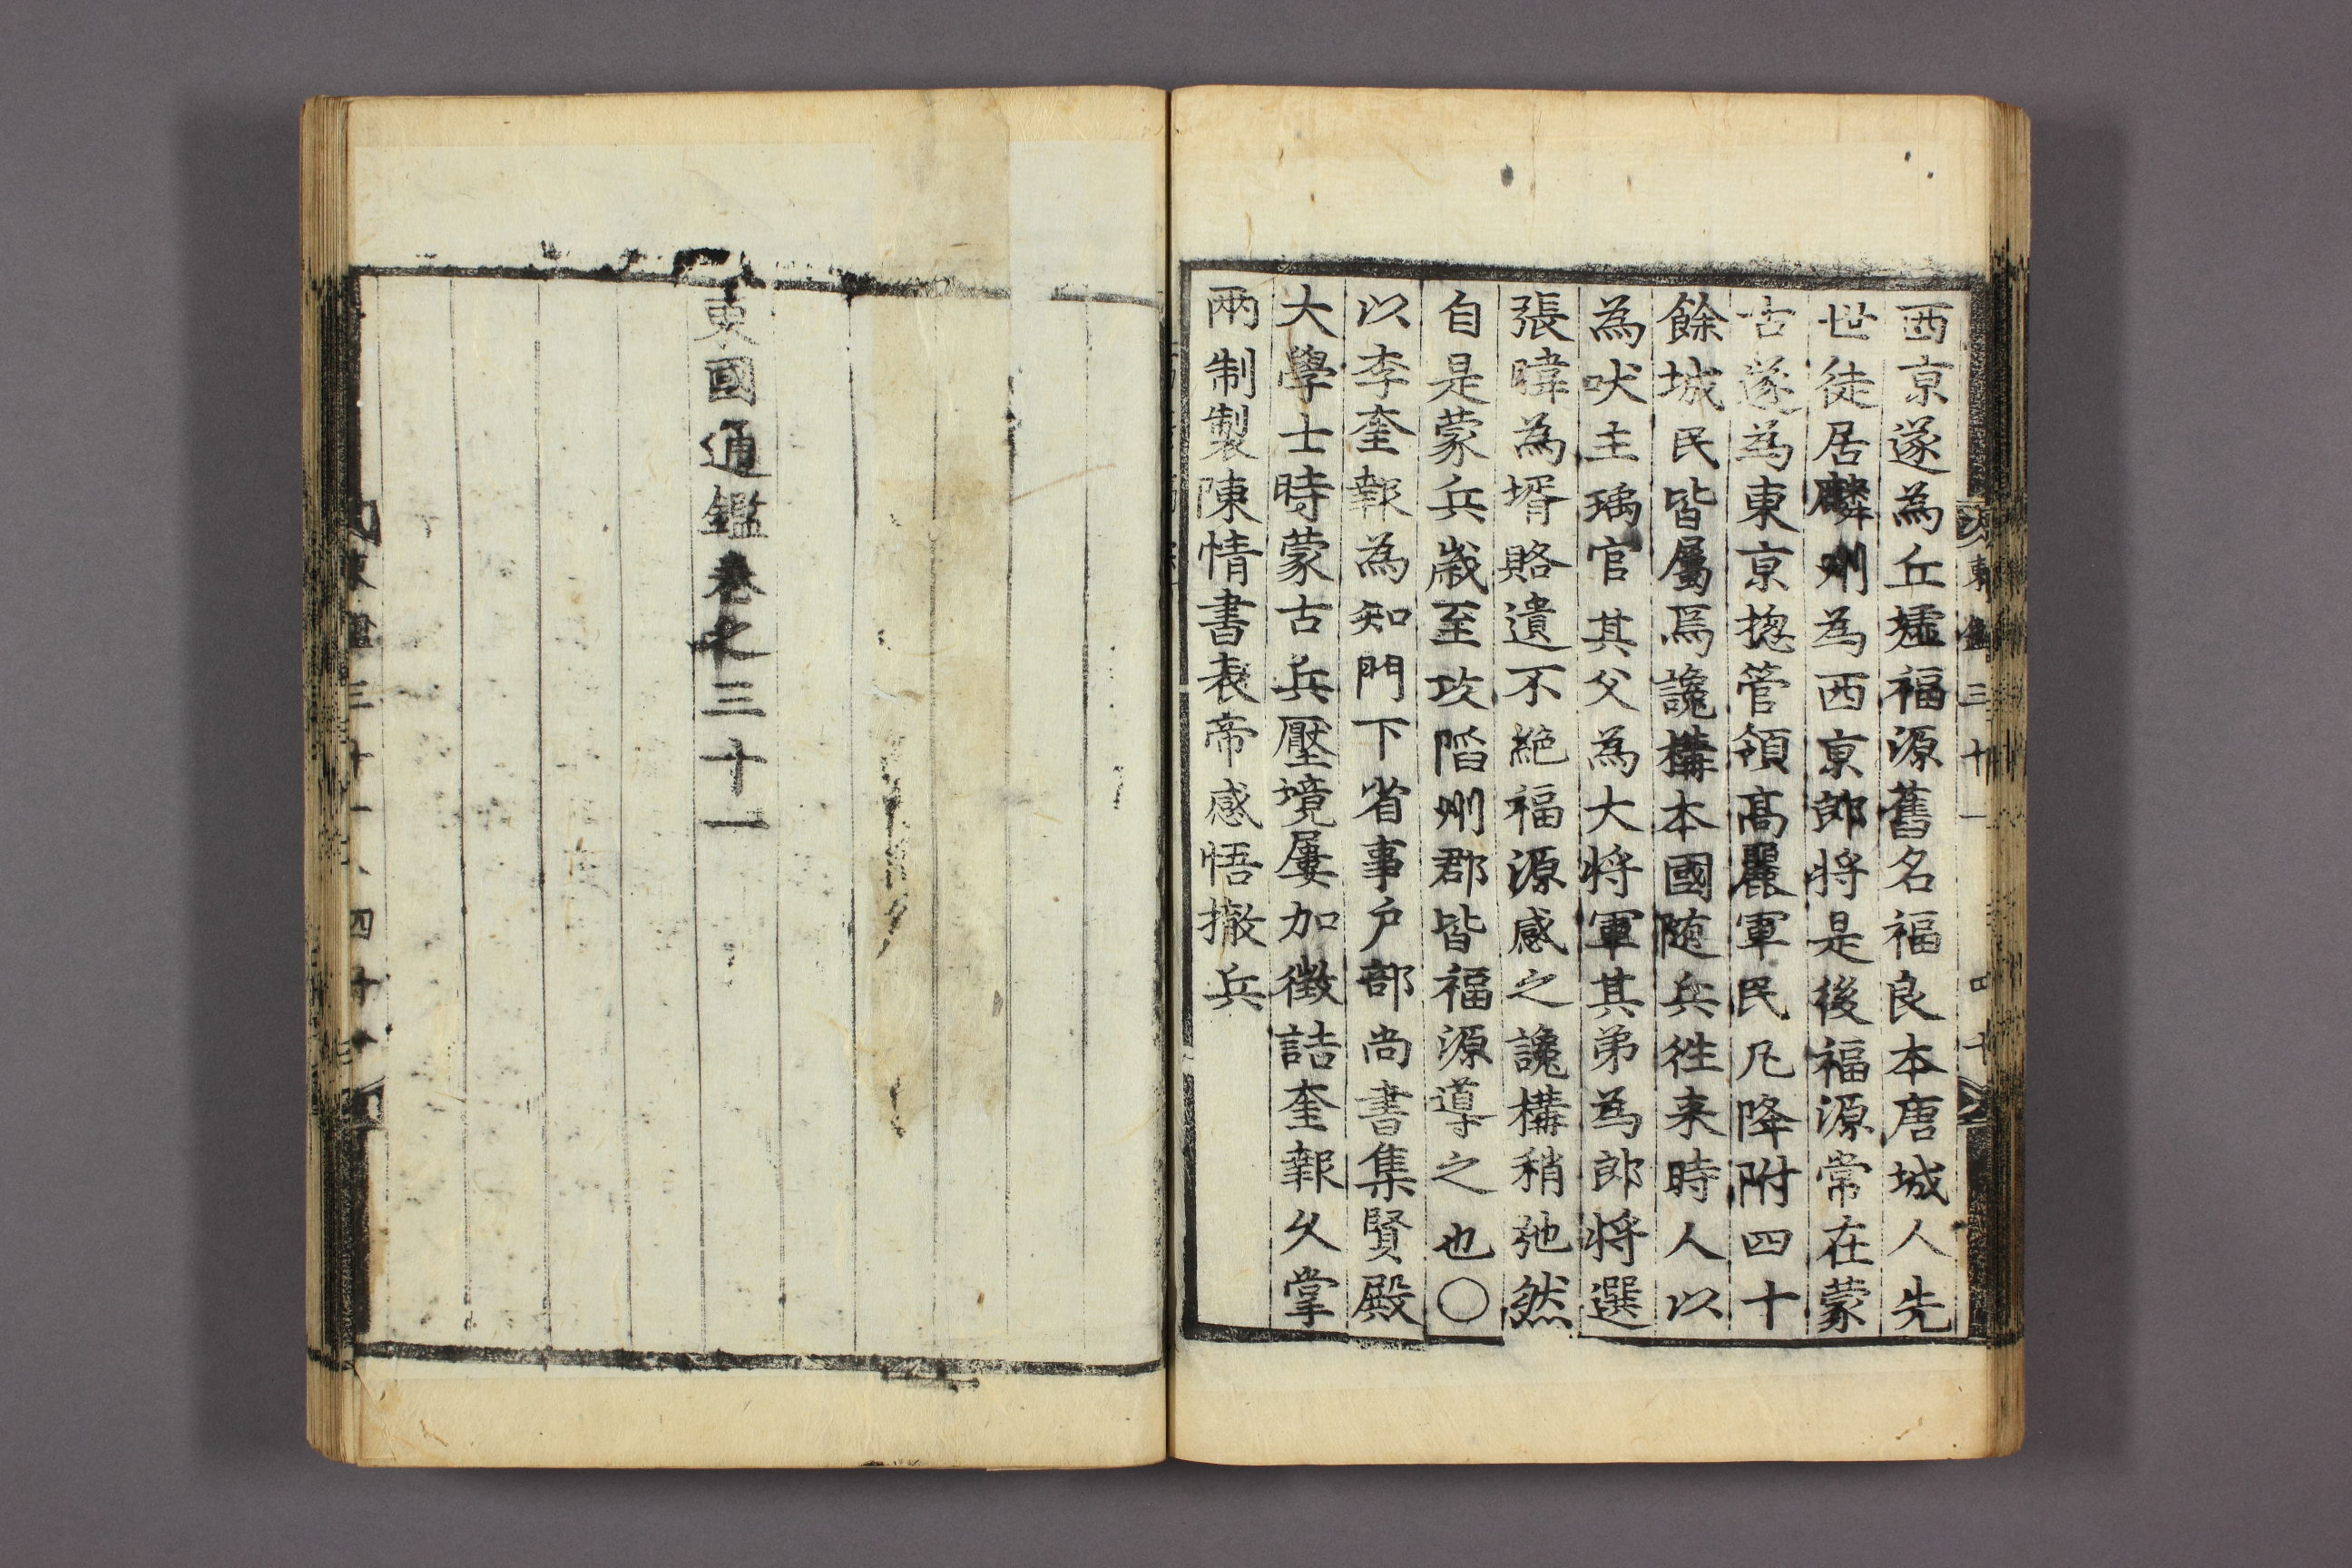 西京遂為丘墟福源舊名福良本唐城人先
世徒居麟州為西京郎将是後福源常在蒙
古遂為東京揔管領髙麗軍民凡降附四十
餘城民皆屬焉讒構本國随兵徃来時人以
為吠主瑀官其父為大将軍其弟為郎将選
張暐為壻賂遺不絶福源感之讒構稍弛然
自是蒙兵歳至攻陷州郡皆福源導之也○
以李奎報為知門下省事户部尚書集賢殿
大學士時蒙古兵壓境屢加徵詰奎報久掌
兩制製陳情書表帝感悟撤兵
東鑑三十一
四十
東國通鑑卷之三十一
東鑑三十一
四十